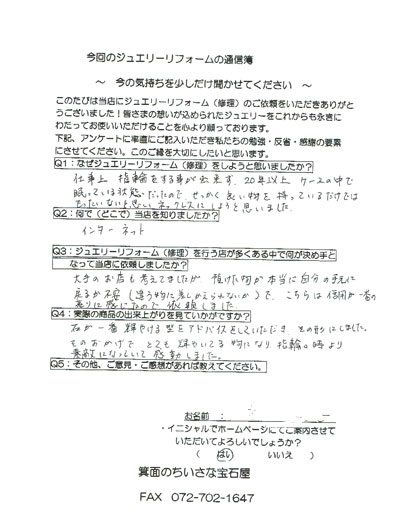 今回のジュエリーリフォームの通信簿
～ 今の気持ちを少しだけ聞かせてください ～
このたびは当店にジュエリーリフォーム（修理）のご依頼をいただきありがと
うございました！皆さまの想いが込められたジュエリーをこれからも永きに
わたってお使いいただけることを心より願っております。
下記、アンケートに率直にご記入いただき私たちの勉強・反省・感謝の要素
にさせてください。このご縁を大切にしたいと思います。
Q1：なぜジュエリーリフォーム（修理）をしようと思いましたか？
仕事上 指輪をする事が出来ず、20年以上 ケースの中で
眠っている状態だったので、せっかく良い物を持っているだけでは
もったいないと思い ネックレスにしようと思いました
Q2：何で（どこで）当店を知りましたか？
インターネット
Q3：ジュエリーリフォーム（修理）を行う店が多くある中で何が決め手と
なって当店に依頼しましたか？
大手のお店も考えてましたが、預けた物が本当に自分の手元に
戻るか不安（違う物に差しかえられないか）で、こちらは信用が一番
ありに感じたので依頼しました
Q4：実際の商品の出来上がりを見ていかがですか？
石が一番輝やける型をアドバイスをしていただき その形にしました。
そのおかげで とても輝やいてる物になり 指輪の時より
素敵になっていて感動しました。
Q5：その他、ご意見・ご感想があれば教えてください。
お名前：
・イニシャルでホームページにてご案内させて
いただいてよろしいでしょうか？
（ はい いいえ ）
箕面のちいさな宝石屋
FAX 072-702-1647